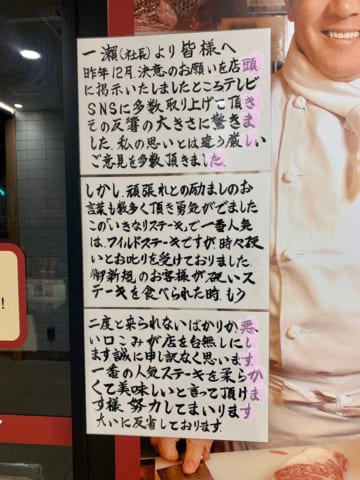 一瀬(社長)より皆様へ
昨年12月、決意のお願いを店頭
に掲示いたしましたところテレビ
SNSに多数取り上げて頂き
その反響の大きさに驚きま
した。私の思いとは違う厳しい
ご意見を多数頂きました。
しかし、頑張れとの励ましのお
言葉も数多く頂き勇気がでました
この「いきなりステーキ」で一番人気
は、ワイルドステーキですが時々硬い
とお叱りを受けておりました。
御新規のお客様が、硬いス
テーキを食べられた時、もう
二度と来られないばかりか悪
い口こみが店を台無しにし
ます誠に申し訳なく思います。
一番の人気ステーキを柔らか
くて美味しいと言って頂けま
す様、努力してまいります
大いに反省しております。
!